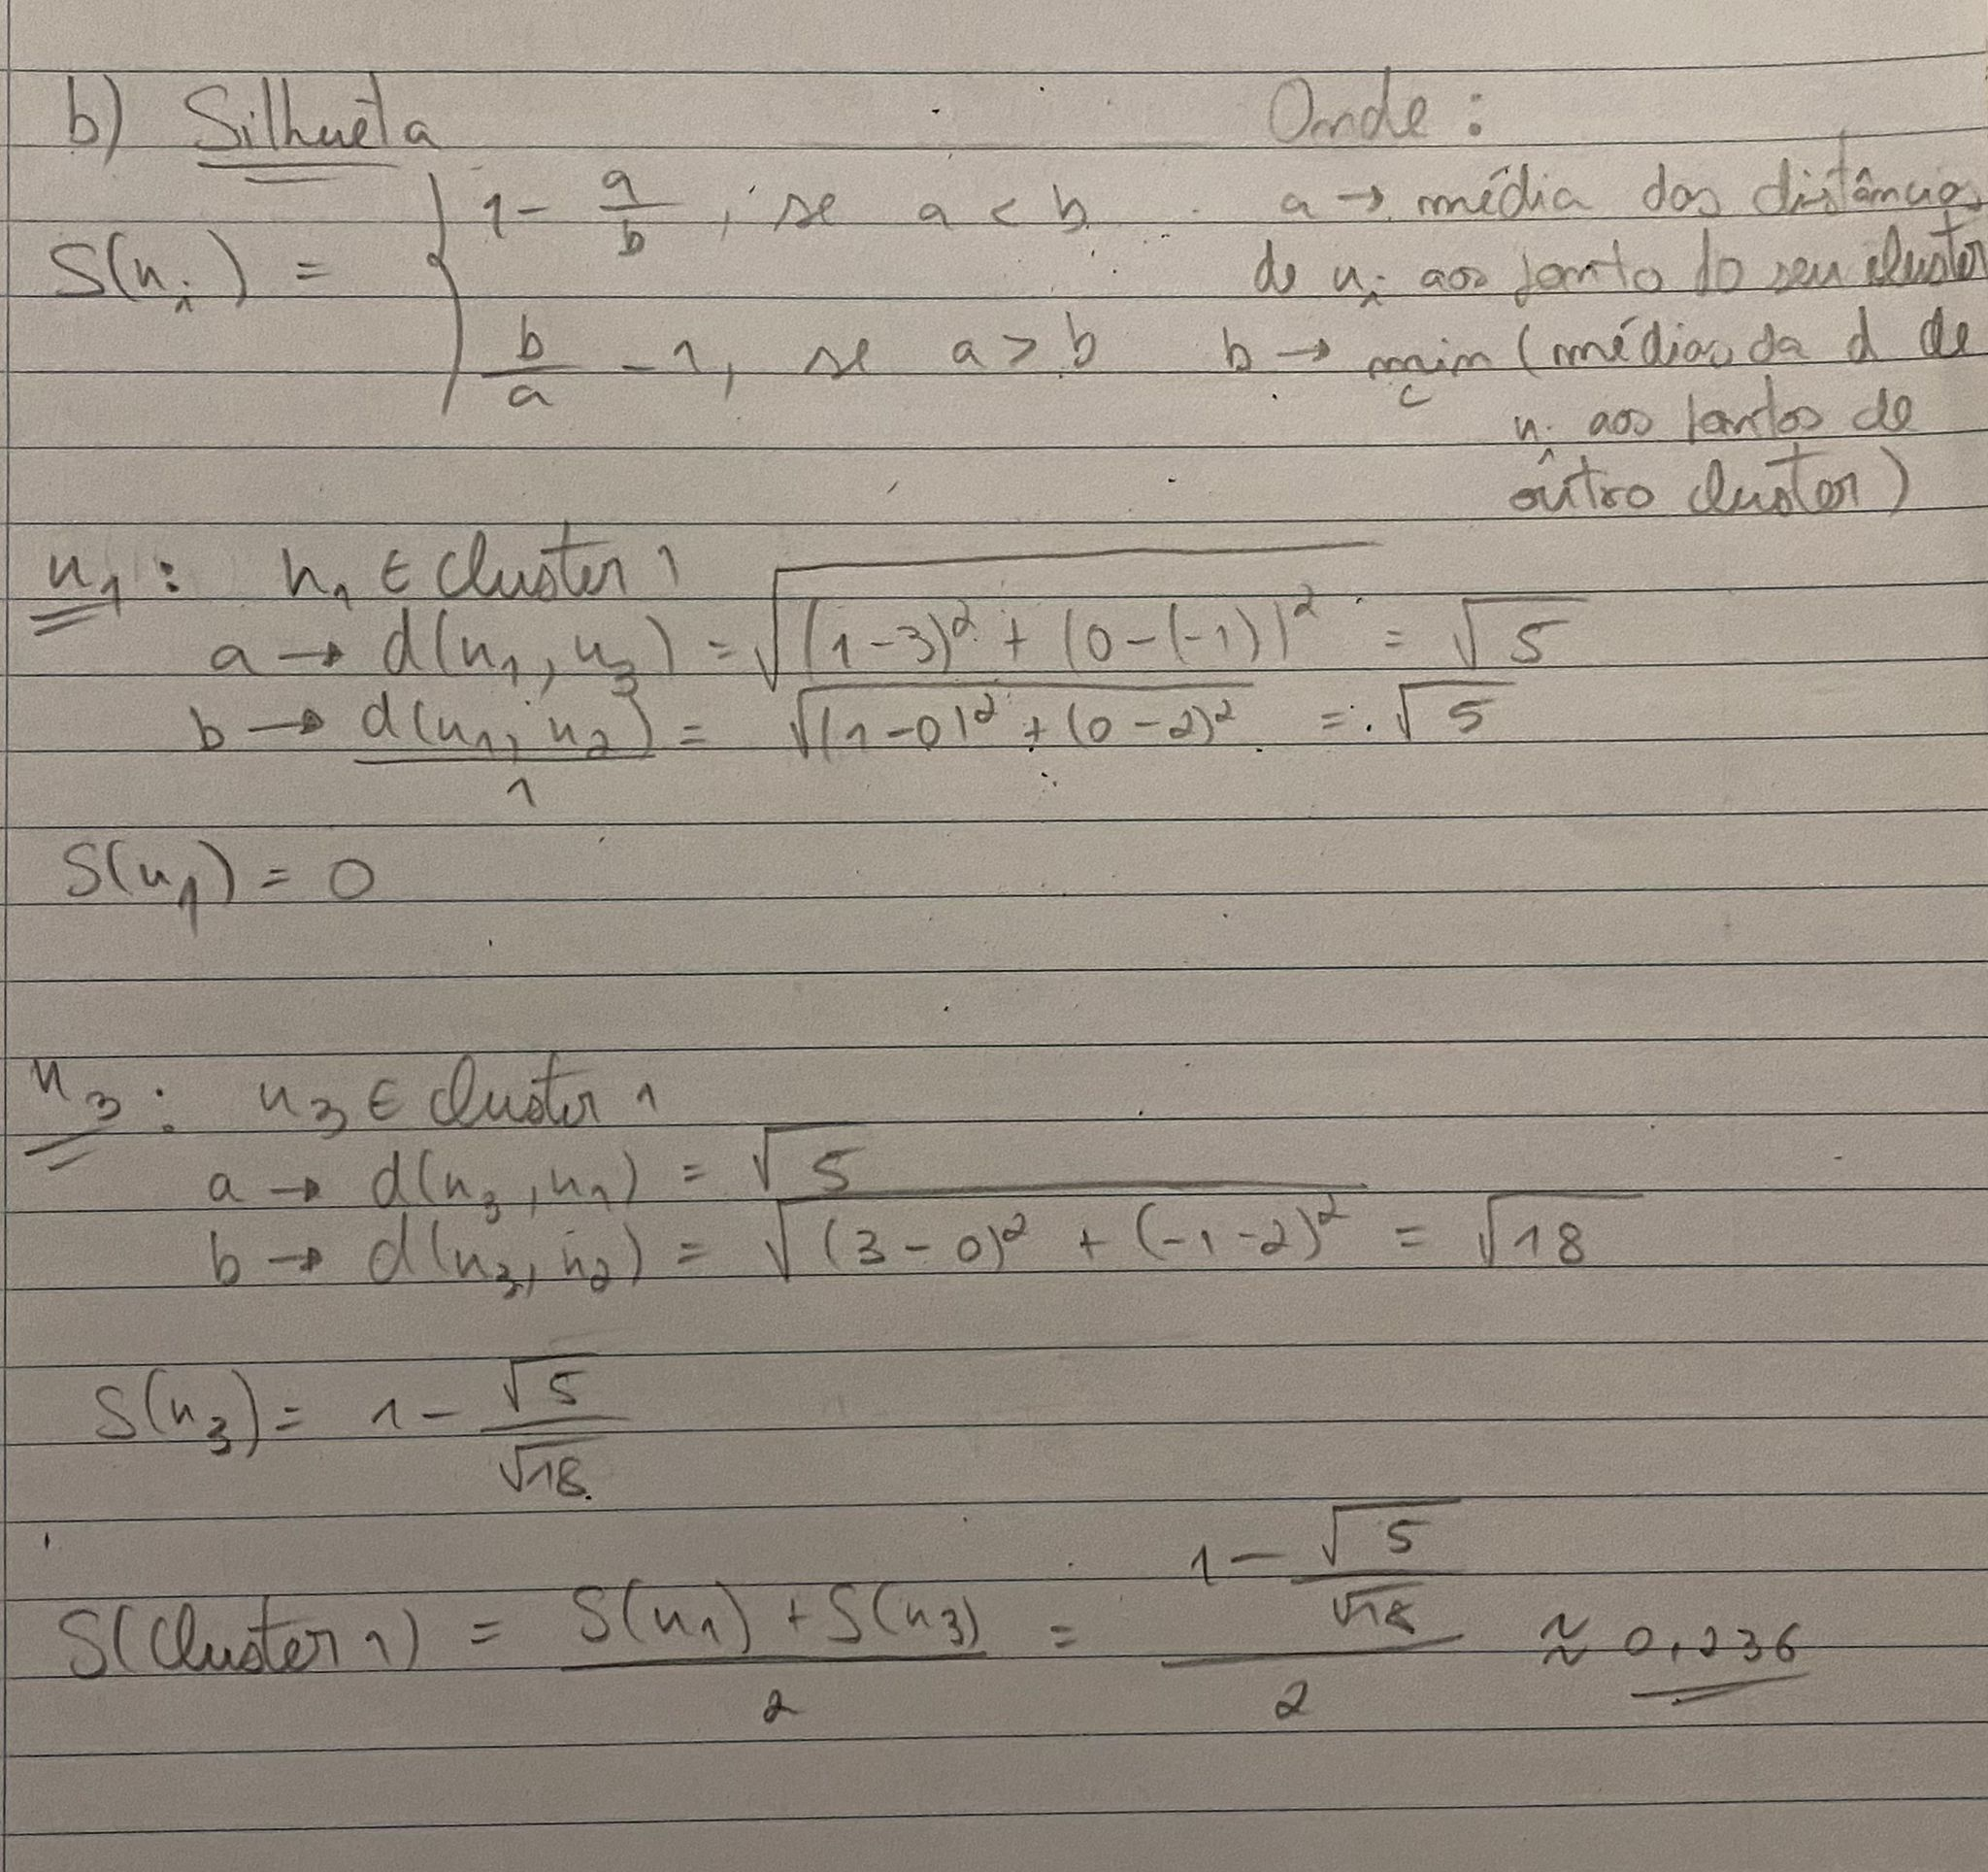 b) Silhueta
Onde:
S(x_i) = { 1 - a/b, se a < b
b/a - 1, se a > b
a → média das distâncias
de x_i aos ponto do seu cluster
b → min_c (média da d de
x_i aos pontos de
outro cluster)
x_1: x_1 ∈ cluster 1
a → d(x_1, x_3) = √((1-3)² + (0-(-1))²) = √5
b → d(x_1, x_2)/1 = √((1-0)² + (0-2)²) = √5
S(x_1) = 0
x_3: x_3 ∈ cluster 1
a → d(x_3, x_1) = √5
b → d(x_3, x_2) = √((3-0)² + (-1-2)²) = √18
S(x_3) = 1 - √5/√18
S(Cluster 1) = (S(x_1) + S(x_3))/2 = (1 - √5/√18)/2 ≈ 0,236